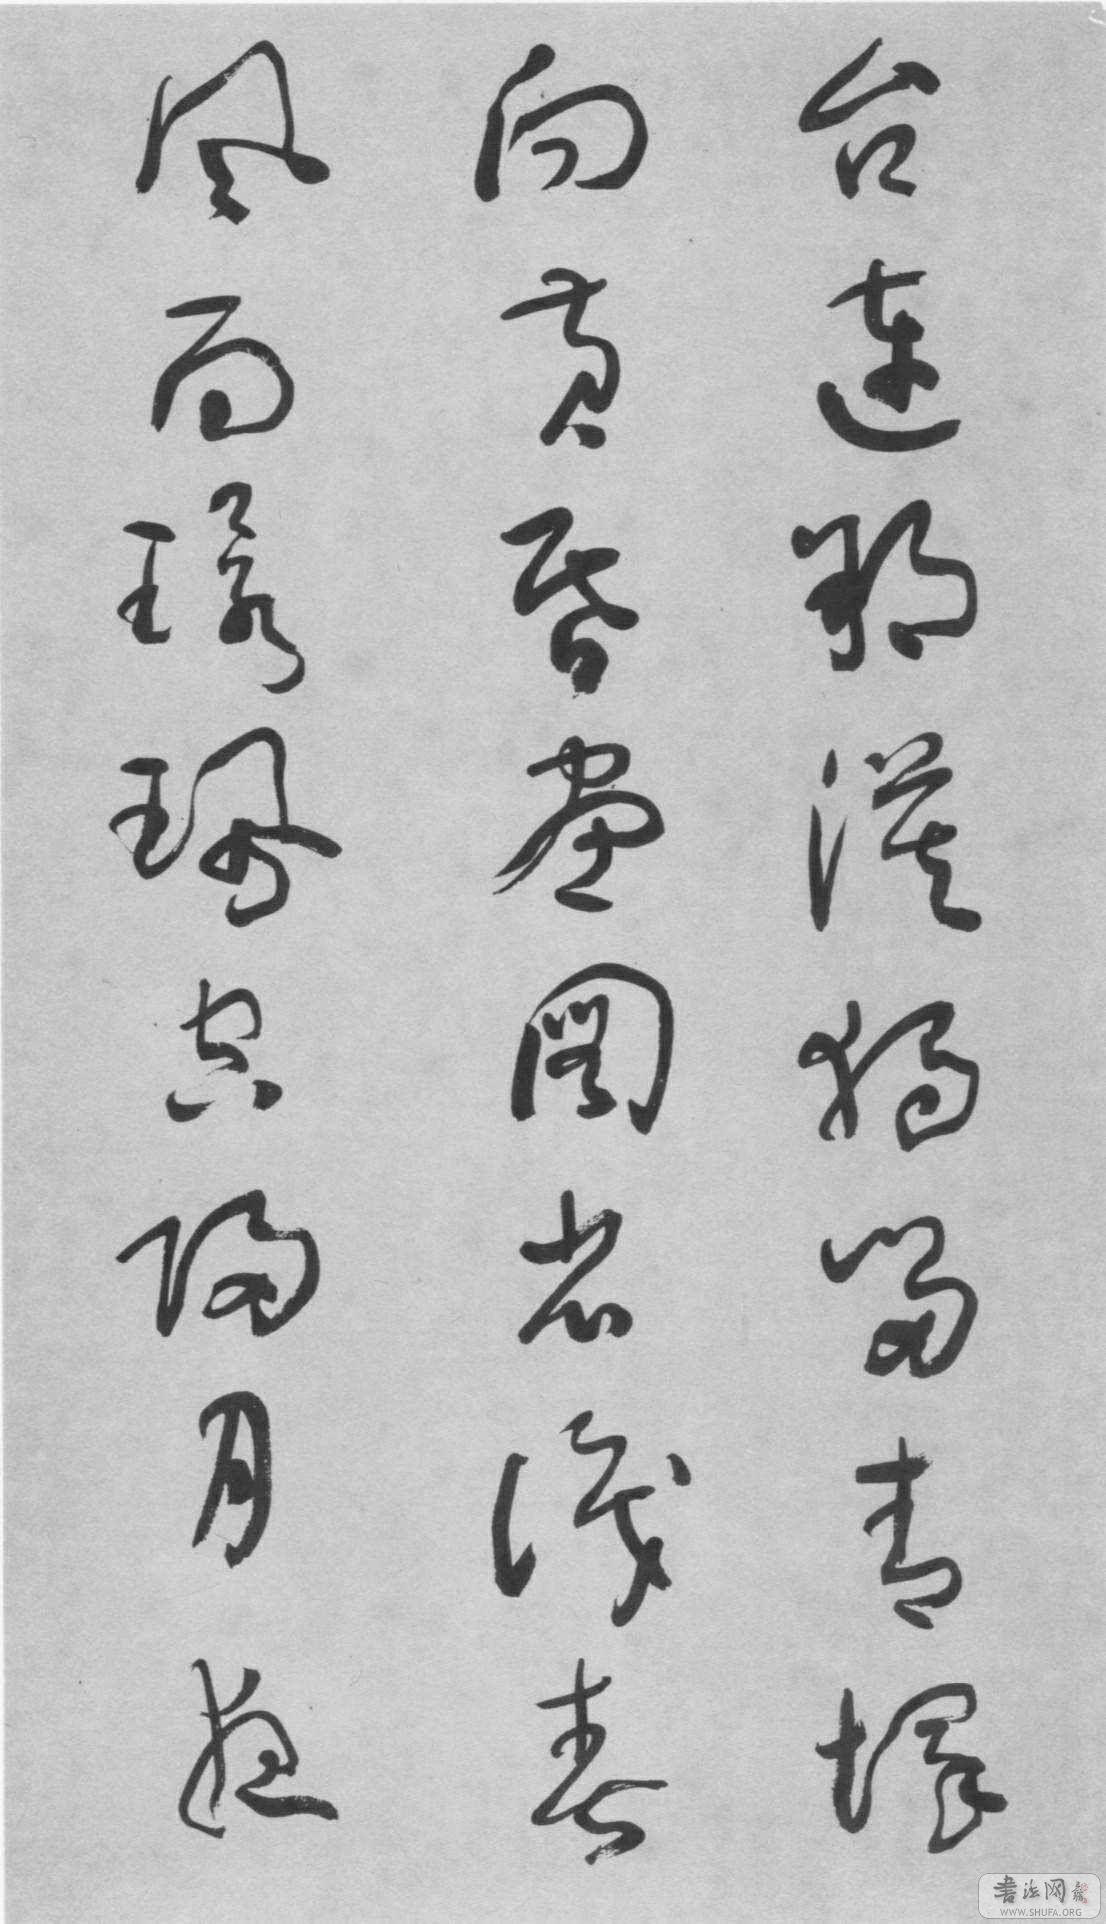 台连朔漠独留青塚
向黄昏画图省识春
风面环珮空归月夜
書法网
WWW.SHUFA.ORG